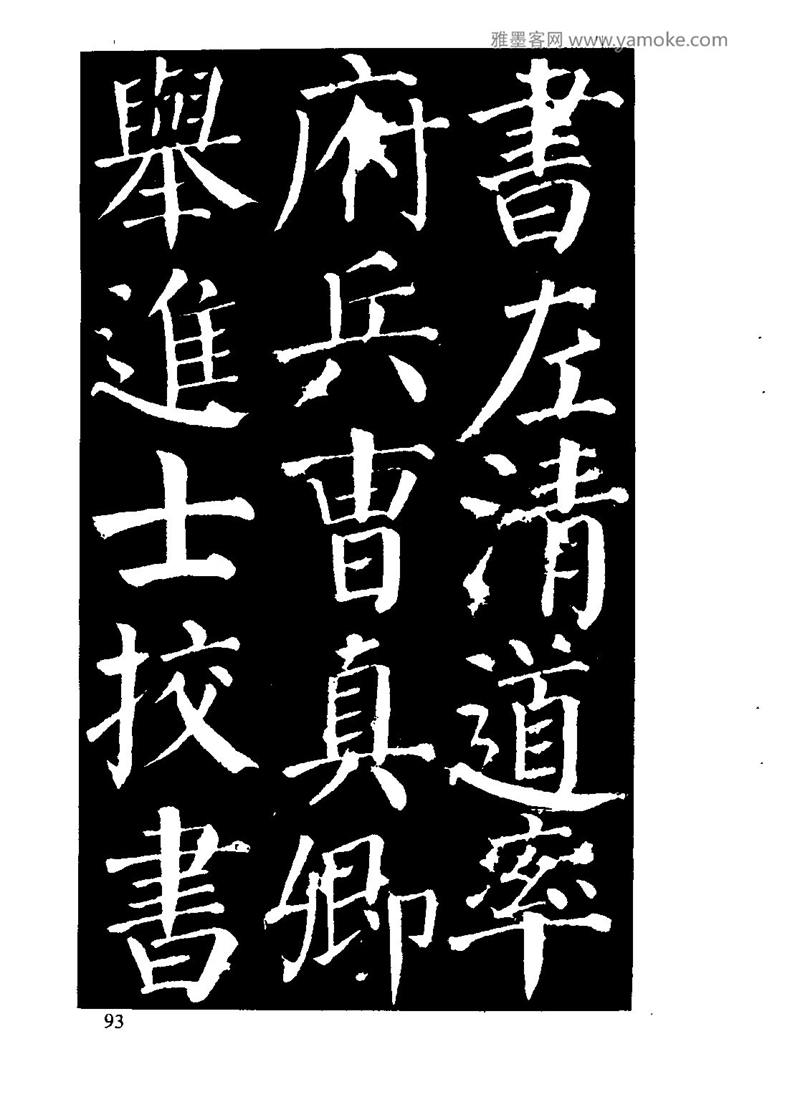 雅墨客网 www.yamoke.com
書左清道率
府兵曹真卿
舉進士挍書
93